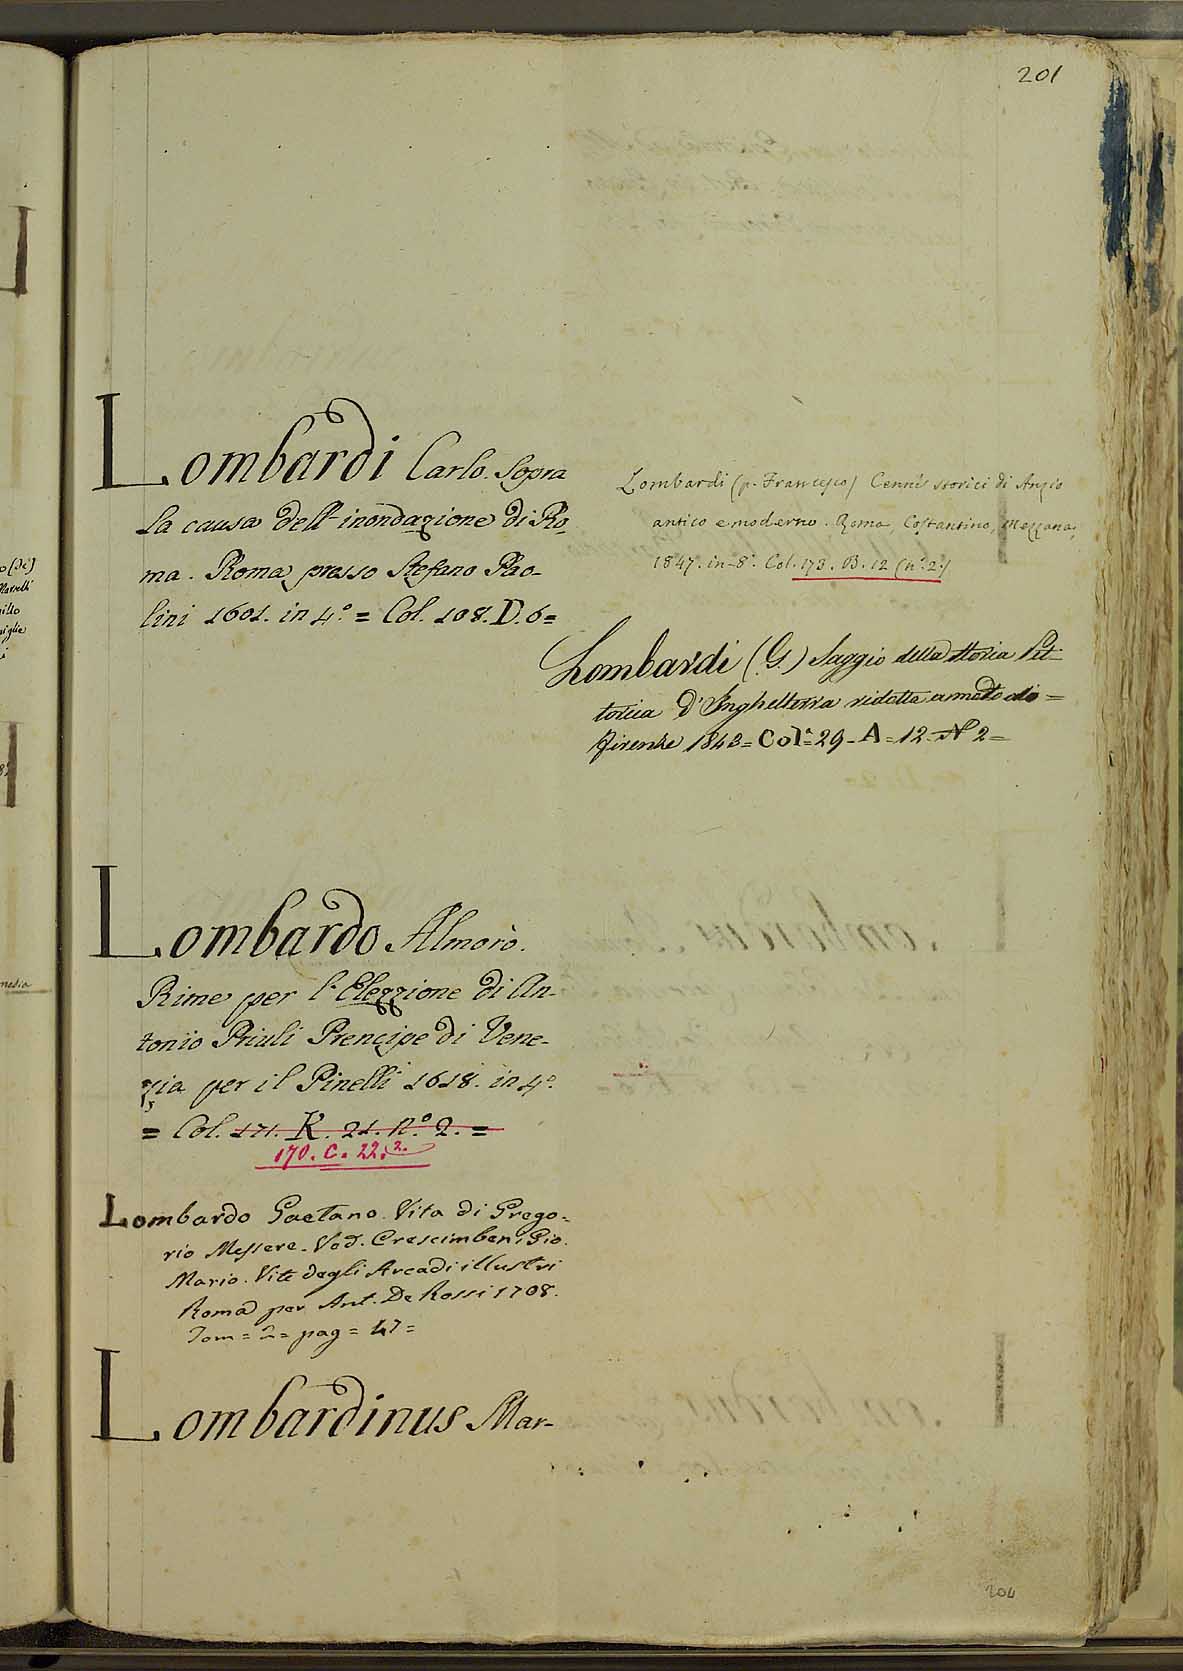 201
Lombardi Carlo. Sopra
la causa dell'inondazione di Ro-
ma. Roma presso Stefano Pao-
lini 1601. in 4.° = Col. 108. D. 6=
Lombardi (p. Francesco) Cenni storici di Anzio
antico e moderno. Roma, Costantino, Mezzana,
1847. in-8.° Col. 173. B. 12 (n.° 2.°)
Lombardi (G.) Saggio della storia Pit-
torica d'Inghilterra ridotta a metodo =
Firenze 1843= Col.ª=29-A=12-N 2=
Lombardo Almorò.
Rime per l'Elezzione di An-
tonio Priuli Prencipe di Vene-
zia per il Pinelli 1618. in 4.°
= Col. 171. K. 21. n.° 2. =
170. C. 22. 2.
Lombardo Gaetano. Vita di Grego-
rio Messere. Ved. Crescimbeni Gio.
Mario. Vite degli Arcadi illustri
Roma per Ant. De Rossi 1708.
Tom = 2 = pag = 47 =
Lombardinus Mar-
204